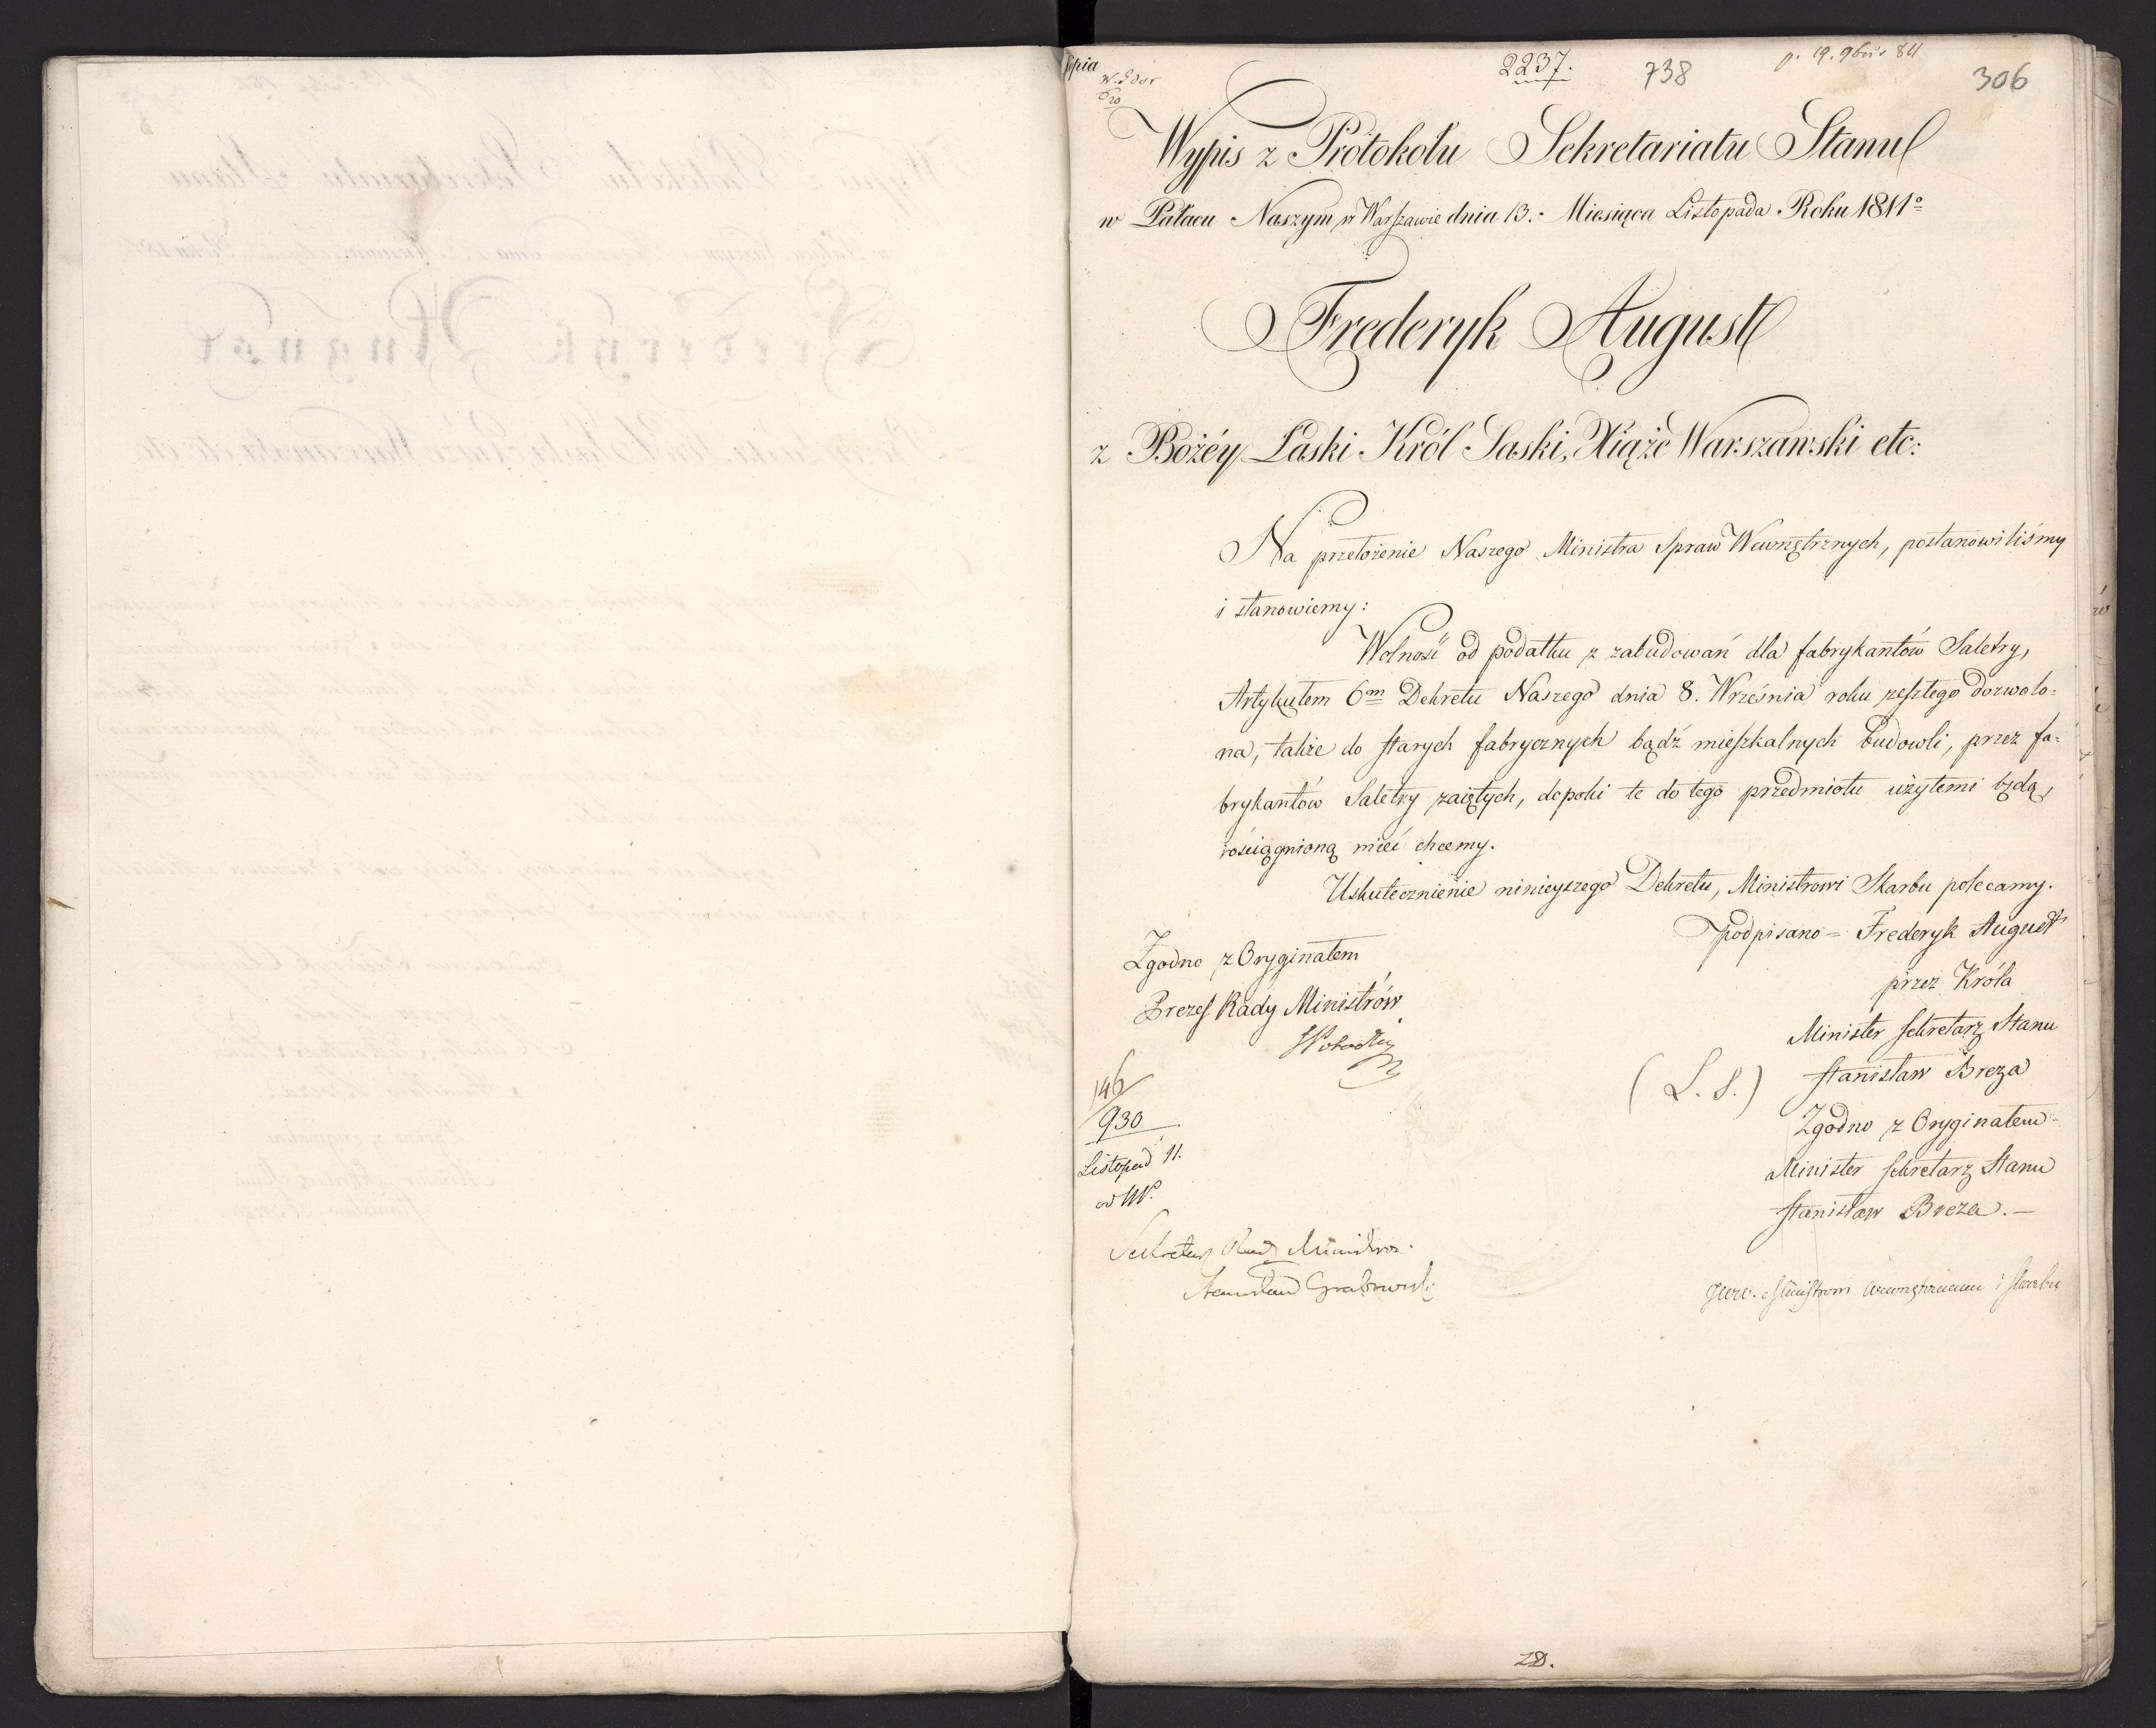 2237.
738
p. 19. 9br 811
306
Wypis z Protokołu Sekretariatu Stanu
w Pałacu Naszym w Warszawie dnia 13. Miesiąca Listopada Roku 1811o
Frederyk August
z Bożéy Łaski Król Saski, Xiąże Warszawski etc:
Na przełożenie Naszego Ministra Spraw Wewnętrznych, postanowiliśmy
i stanowiemy:
Wolność od podatku z zabudowań dla fabrykantów Saletry,
Artykułem 6m Dekretu Naszego dnia 8. Września roku zeszłego dozwolo=
na, także do starych fabrycznych bądź mieszkalnych budowli, przez fa=
brykantów Saletry zaiętych, dopoki te do tego przedmiotu użytemi będą,
rościągnioną mieć chcemy.
Uskutecznienie ninieyszego Dekretu, Ministrowi Skarbu polecamy.
podpisano = Frederyk August
przez Króla
Minister Sekretarz Stanu
(L. S.) Stanisław Breza
Zgodno z Oryginałem
Minister Sekretarz Stanu
Stanisław Breza. —
Zgodno z Oryginałem
Prezes Rady Ministrów
146
930
Listopad 11.
od W.
Sekretarz Rady Ministrów
Stanisław Grabowski
Ministrom Wewnętrznemu i Skarbu